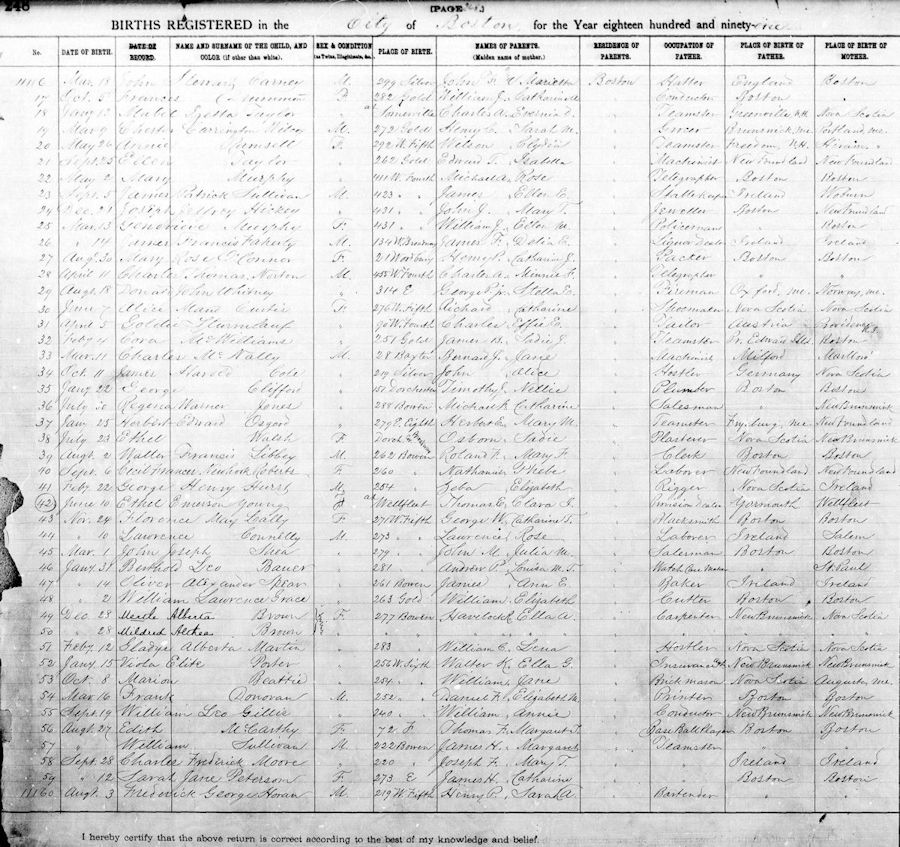 248
[PAGE
BIRTHS REGISTERED in the City of Boston, for the Year eighteen hundred and ninety-one
No. DATE OF BIRTH. DATE OF RECORD. NAME AND SURNAME OF THE CHILD, AND COLOR (if other than white). SEX & CONDITION (as Twins, Illegitimate, &c.) PLACE OF BIRTH. NAMES OF PARENTS. (Maiden name of mother.) RESIDENCE OF PARENTS. OCCUPATION OF FATHER. PLACE OF BIRTH OF FATHER. PLACE OF BIRTH OF MOTHER.
Mar. 18 John M. 299 Silver John Marietta Boston Hatter England Boston
17 Oct. 5 Frances F. 282 Gold William J. Catharine Conductor Boston "
18 Jany 13 Mabel Taylor " Somerville Charles A. Teamster Greenville, NH Nova Scotia
19 Mar 9 Chester Carrington M. 272 Gold Henry Sarah M. Grocer Brunswick, Me. Portland, Me.
20 May 26 Annie Rumsell F. 292 W. Fifth Wilson Teamster Freedom, N.H. Hiram
21 Sept. 25 Ellen Taylor " 262 Gold Edward T. Isabella Machinist Newfoundland Newfoundland
22 May 2 Mary Murphy " 411 W. Fourth Michael A. Rose Telegrapher Boston Boston
23 Sept. 5 James Patrick Sullivan M. 423 " James Ellen Stablekeeper Ireland Woburn
24 Dec. 21 Joseph Jeffrey Hickey " 431 " John J. Mary T. Jeweller Boston Newfoundland
25 Mar. 13 Genevieve Murphy F. 431 " William J. Ellen M. Policeman " Boston
26 " 14 James Francis Faherty M. 134 W. Broadway James F. Delia Liquor dealer Ireland Ireland
27 Aug. 30 Mary Rose O'Connor F. 21 Woodbury Henry Catharine J. Packer Boston Boston
28 April 11 Charles Thomas Norton M. 455 W. Fourth Charles A. Minnie F. Telegrapher " "
29 Augt. 18 Donald John Whitney " 314 E George P. Jr. Stella Fireman Oxford, Me. Norway, Me.
30 June Alice Maud Curtis F. 276 W. Fifth Richard Catharine Shoemaker Nova Scotia Nova Scotia
31 April 5 Goldie Sturmlauf " 90 W. Fourth Charles Effie Tailor Austria Providence R.I.
32 Feby 4 Cora McWilliams " 251 Gold James Sadie J. Teamster Pr. Edward Isld. Boston
33 Mar. 11 Charles McNally M. 28 Baxter Bernard J. Jane Machinist Milford Marlboro'
34 Oct. 11 James Harold Cole " 219 Silver John Alice Hostler Germany Nova Scotia
35 Jany 22 George Clifford " 150 Dorchester Timothy J. Nellie Plumber Boston Boston
36 July Regena Warner Jones " 288 Bowen Michael Catharine Salesman " New Brunswick
37 Jany 25 Herbert Edward Osgood " 279 E. Eighth Herbert Mary M. Teamster Fryeburg, Me Newfoundland
38 July 23 Ethel Walsh F. Dorch & Broadway Osborn Sadie Plasterer Nova Scotia New Brunswick
39 Augt. 2 Walter Francis Libbey M. 262 Bowen Roland F. Mary F. Clerk Boston Boston
40 Sept. 6 Cecil Frances Newhook Roberts F. 260 " Nathaniel Phebe Laborer Newfoundland Newfoundland
41 Feby 22 George Henry Hurst M. 254 " Zeba Elizabeth Rigger Nova Scotia Ireland
42 June 10 Ethel Emerson Young F. at Wellfleet Thomas Clara J. Provision dealer Yarmouth Wellfleet
43 Nov. 24 Florence May Lally F. 271 W. Fifth George W. Catharine T. Boston Boston
44 " 10 Lawrence Connelly M. 273 " Lawrence Rose Laborer Ireland Salem
45 Mar. 1 John Joseph Shea " 279 " John M. Julia M. Salesman Boston Boston
46 Jany. 31 Berthold Leo Bauer " 281 " Andrew P. Louisa M. T. Watch Case Maker " St. Paul
47 " 14 Oliver Alexander Spear " 261 Bowen James Ann E. Baker Ireland Ireland
48 " 2 William Lawrence Grace " 263 Gold William Elizabeth Cutter Boston Boston
49 Dec. 28 Merle Alberta Brown F. 277 Bowen Havelock Ella Carpenter New Brunswick Nova Scotia
50 " 28 Mildred Althea Brown " " " " " "
51 Feby. 12 Gladys Alberta Martin " 283 " William C. Lena Hostler Nova Scotia Nova Scotia
52 Jany. 15 Viola Porter " 256 W. Sixth Walter Ella G. New Brunswick New Brunswick
53 Oct. 8 Marion Beattie " 254 " William Jane Brick mason Nova Scotia Augusta, Me.
54 Mar. 16 Frank Donovan M. 252 " Daniel F. Elizabeth M. Printer Boston Boston
55 Sept. 19 William Leo Gillie " 240 " William Annie Conductor New Brunswick New Brunswick
56 Augt. 27 Edith McCarthy F. 72 F Thomas F. Margaret T. Base Ball Player Boston Boston
57 " William Sullivan M. 222 Bowen James H. Margaret Teamster " "
58 Sept. 28 Charles Frederick Moore " 220 " Joseph F. Mary T. " Ireland Ireland
59 " 12 Sarah Jane Peterson F. 273 E James H. Catharine " Boston Boston
11160 Augt. 3 Frederick George Horan M. 219 W. Fifth Henry P. Sarah A. Bartender " "
I hereby certify that the above return is correct according to the best of my knowledge and belief.